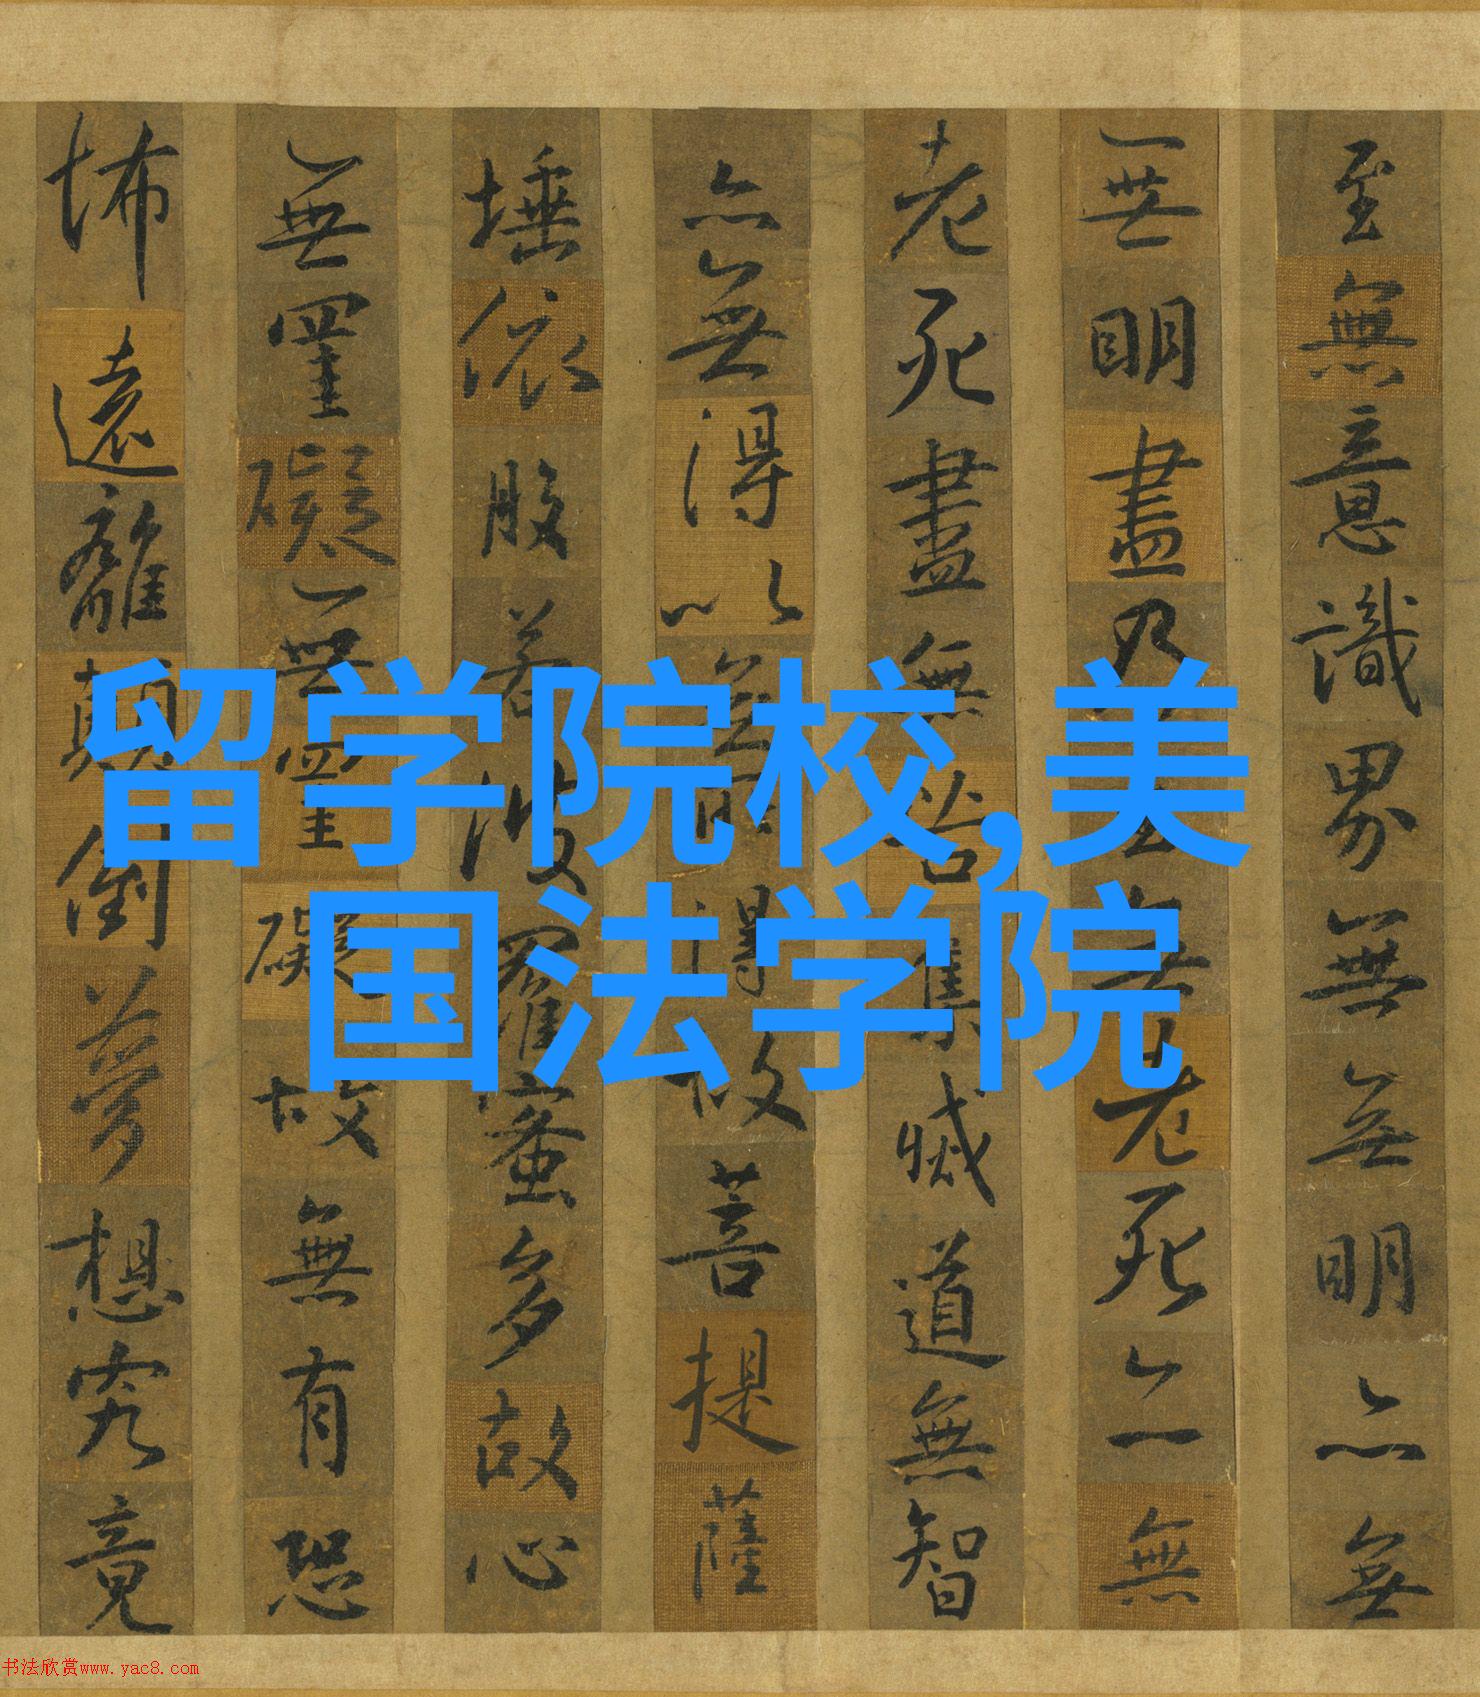 至無意識界無無明亦無
無明盡乃至無老死亦無
老死盡無苦集滅道無智
亦無得以無所得故菩提薩
埵依般若波羅蜜多故心
無罣礙無罣礙故無有恐
怖遠離顛倒夢想究竟
留学院校,美
国法学院
书法欣赏www.yac8.com